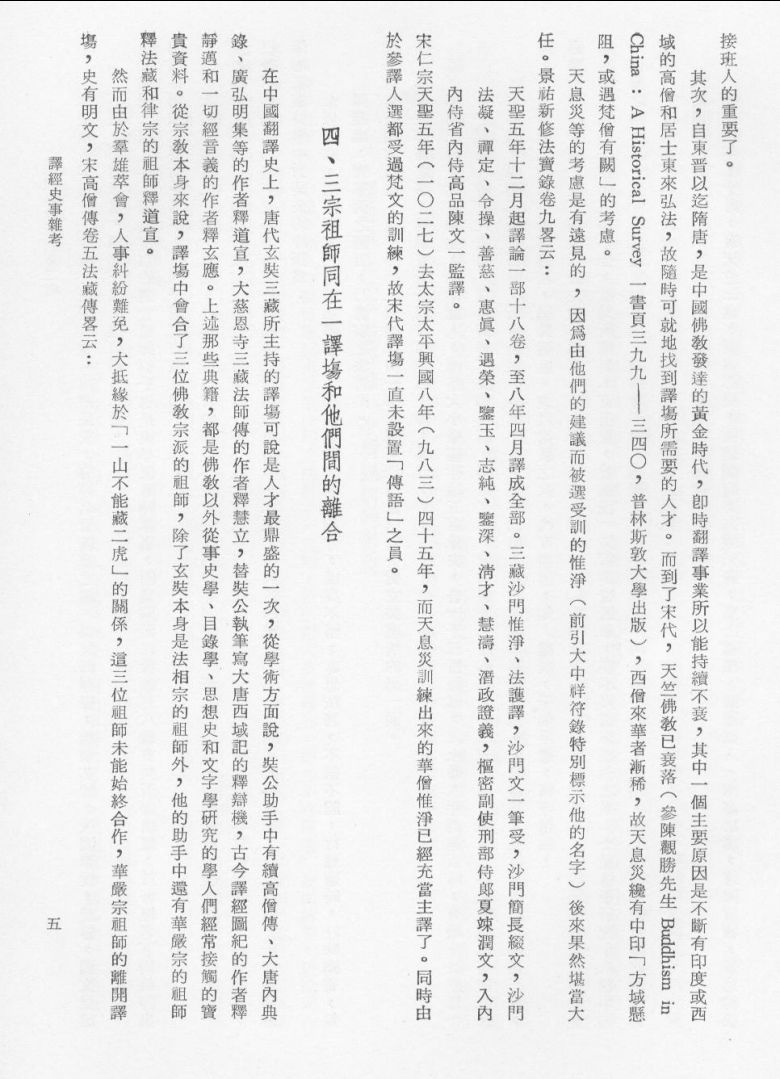 接班人的重要了。
其次，自東晋以迄隋唐，是中國佛敎發達的黃金時代，卽時翻譯事業所以能持續不衰，其中一個主要原因是不斷有印度或西
域的高僧和居士東來弘法，故隨時可就地找到譯塲所需要的人才。而到了宋代，天竺佛敎已衰落（參陳觀勝先生 Buddhism in
China : A Historical Survey 一書頁三九九——三四〇，普林斯敦大學出版），西僧來華者漸稀，故天息災纔有中印「方域懸
阻，或遇梵僧有闕」的考慮。
天息災等的考慮是有遠見的，因爲由他們的建議而被選受訓的惟淨（前引大中祥符錄特別標示他的名字）後來果然堪當大
任。景祐新修法寶錄卷九畧云：
天聖五年十二月起譯論一部十八卷，至八年四月譯成全部。三藏沙門惟淨、法護譯，沙門文一筆受，沙門簡長綴文，沙門
法凝、禪定、令操、善慈、惠眞、遇榮、鑒玉、志純、鑒深、淸才、慧濤、潛政證義，樞密副使刑部侍郎夏竦潤文，入內
內侍省內侍高品陳文一監譯。
宋仁宗天聖五年（一〇二七）去太宗太平興國八年（九八三）四十五年，而天息災訓練出來的華僧惟淨已經充當主譯了。同時由
於參譯人選都受過梵文的訓練，故宋代譯塲一直未設置「傳語」之員。
四、三宗祖師同在一譯塲和他們間的離合
在中國翻譯史上，唐代玄奘三藏所主持的譯塲可說是人才最鼎盛的一次，從學術方面說，奘公助手中有續高僧傳、大唐內典
錄、廣弘明集等的作者釋道宣，大慈恩寺三藏法師傳的作者釋慧立，替奘公執筆寫大唐西域記的釋辯機，古今譯經圖紀的作者釋
靜邁和一切經音義的作者釋玄應。上述那些典籍，都是佛敎以外從事史學、目錄學、思想史和文字學硏究的學人們經常接觸的寶
貴資料。從宗敎本身來說，譯塲中會合了三位佛敎宗派的祖師，除了玄奘本身是法相宗的祖師外，他的助手中還有華嚴宗的祖師
釋法藏和律宗的祖師釋道宣。
然而由於羣雄萃會，人事糾紛難免，大抵緣於「一山不能藏二虎」的關係，這三位祖師未能始終合作，華嚴宗祖師的離開譯
塲，史有明文，宋高僧傳卷五法藏傳畧云：
譯經史事雜考
五